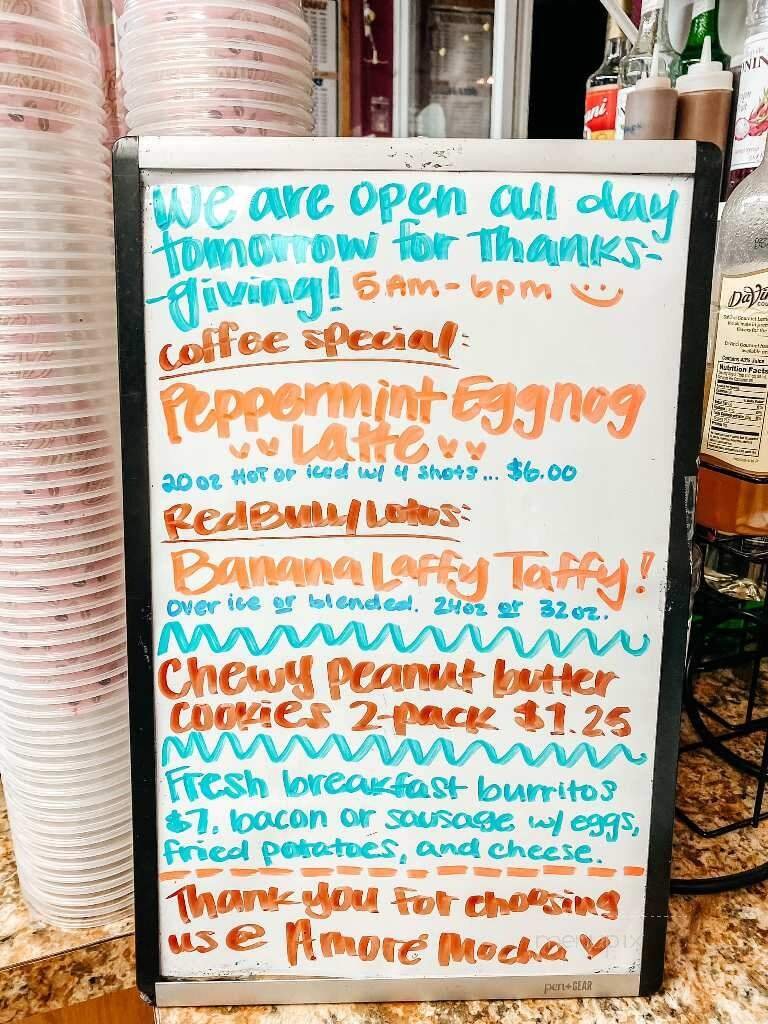 We are open all day
tomorrow for Thanks-
giving! 5am-6pm
coffee special:
Peppermint Eggnog
Latte
20oz Hot or iced w/ 4 shots... $6.00
RedBull/Lotus:
Banana Laffy Taffy!
Over ice or blended. 24oz or 32oz.
Chewy peanut butter
cookies 2-pack $1.25
Fresh breakfast burritos
$7. bacon or sausage w/ eggs,
fried potatoes, and cheese.
Thank you for choosing
us @ Amore Mocha
menupix
pen+GEAR
DaVinci
Nutrition Facts